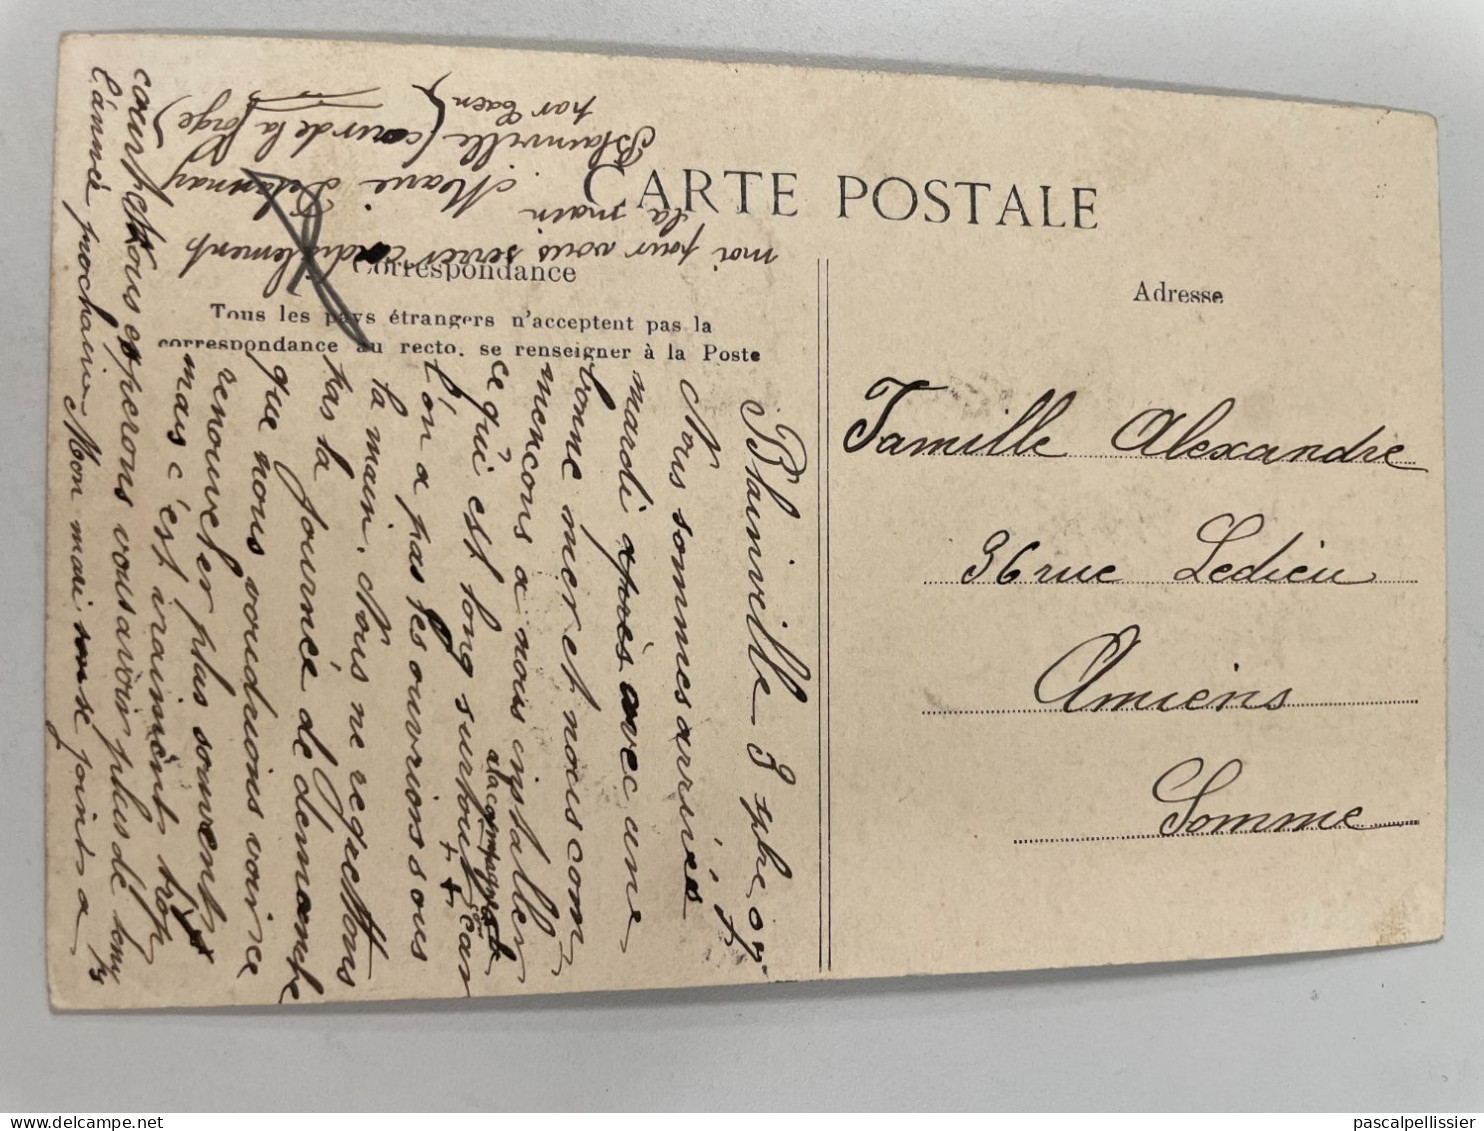 CARTE POSTALE
Correspondance
Tous les pays étrangers n'acceptent pas la
correspondance au recto. se renseigner à la Poste
Adresse
Famille Alexandre
36 rue Ledieu
Amiens
Somme
Blainville 3 7bre 07
Nous sommes arrivés
mardi après avec une
bonne mer et nous com-
mençons a nous installer
ce qui est long surtout a la campagne car
l'on a pas les ouvriers sous
la main. Nous ne regrettons
pas la journée de dimanche
que nous voudrions voir se
renouveler plus souvent
mais c'est vraiment trop
court Nous esperons vous avoir plus de temps
l'année prochaine Mon mari se joint a
moi pour vous serrer cordialement
la main
Marie Delaunay
Blainville (cour de la forge)
par Caen
pascalpellissier